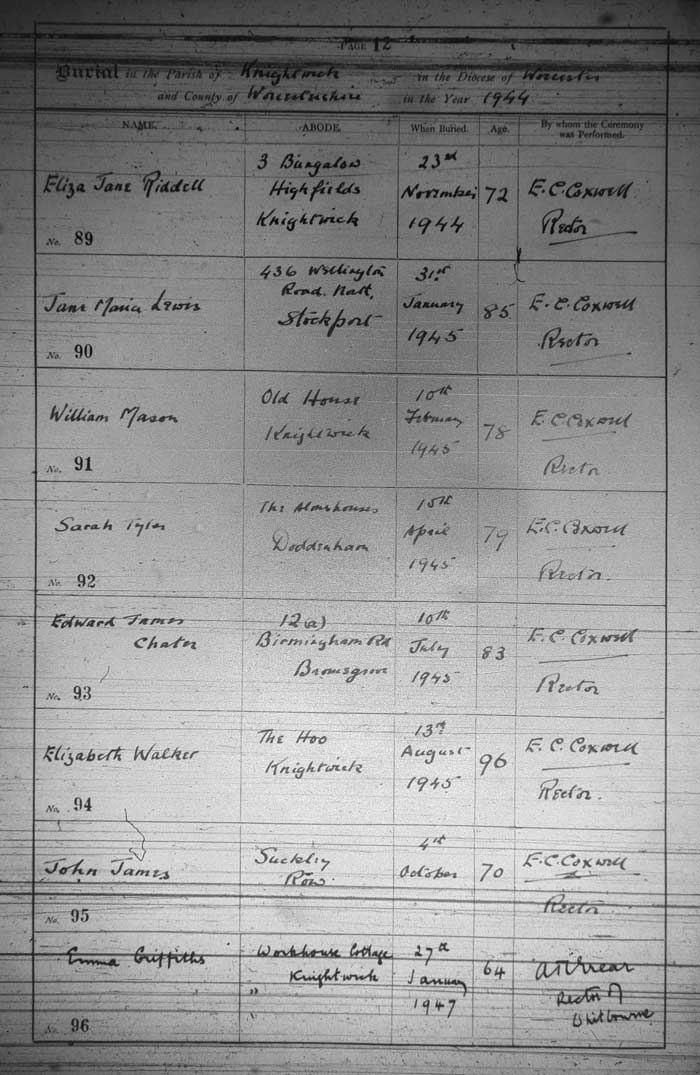 PAGE 12
Burial in the Parish of Knightwick in the Diocese of Worcester
and County of Worcestershire in the Year 1944
NAME. ABODE. When Buried. Age. By whom the Ceremony was Performed.
Eliza Jane Riddell
No. 89
3 Bungalow
Highfields
Knightwick
23rd
November
1944
72
E. C. Coxwell
Rector
Jane Maria Lewis
No. 90
436 Wellington
Road. Natt,
Stockport
31st
January
1945
85
E. C. Coxwell
Rector
William Mason
No. 91
Old House
Knightwick
10th
February
1945
78
E. C. Coxwell
Rector
Sarah Tyler
No. 92
The Almshouses
Doddenham
15th
April
1945
79
E. C. Coxwell
Rector.
Edward James
Chater
No. 93
12(a)
Birmingham Rd
Bromsgrove
10th
July
1945
83
E. C. Coxwell
Rector
Elizabeth Walker
No. 94
The Hoo
Knightwick
13th
August
1945
96
E. C. Coxwell
Rector.
John James
No. 95
Suckley
Row.
4th
October
70
E. C. Coxwell
Rector
Emma Griffiths
No. 96
Workhouse Cottage
Knightwick
"
27th
January
1947
64
Rector of
Whitbourne